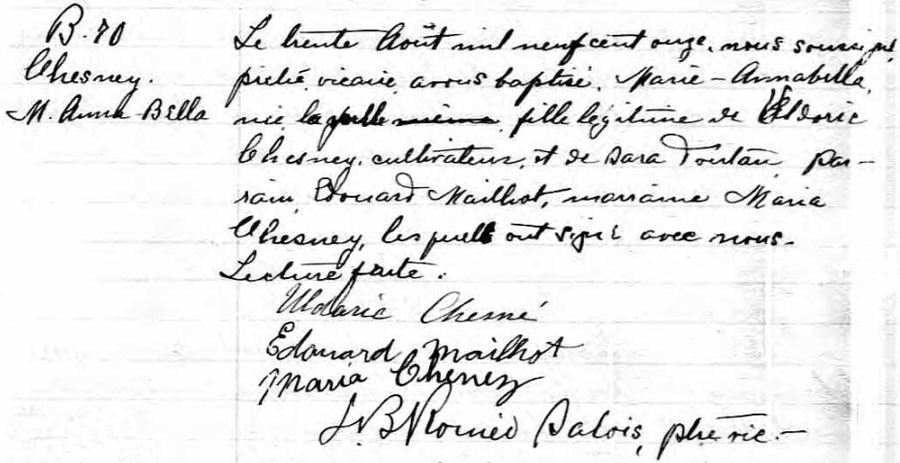 B. 70
Chesney.
M. Anna-Bella
Le trente Août mil neuf cent onze, nous soussigné,
prêtre, vicaire, avons baptisé, Marie-Annabella,
née la, fille légitime de Uldoric
Chesney, cultivateur, et de Sara Toutan, par-
rain, Edouard Mailhot, marraine Maria
Chesney, lesquels ont signé avec nous.
Lecture faite.
Uldaric Chesné
Edouard Mailhot
Maria Cheney
J. B. Roméo Salois, ptre vic.-